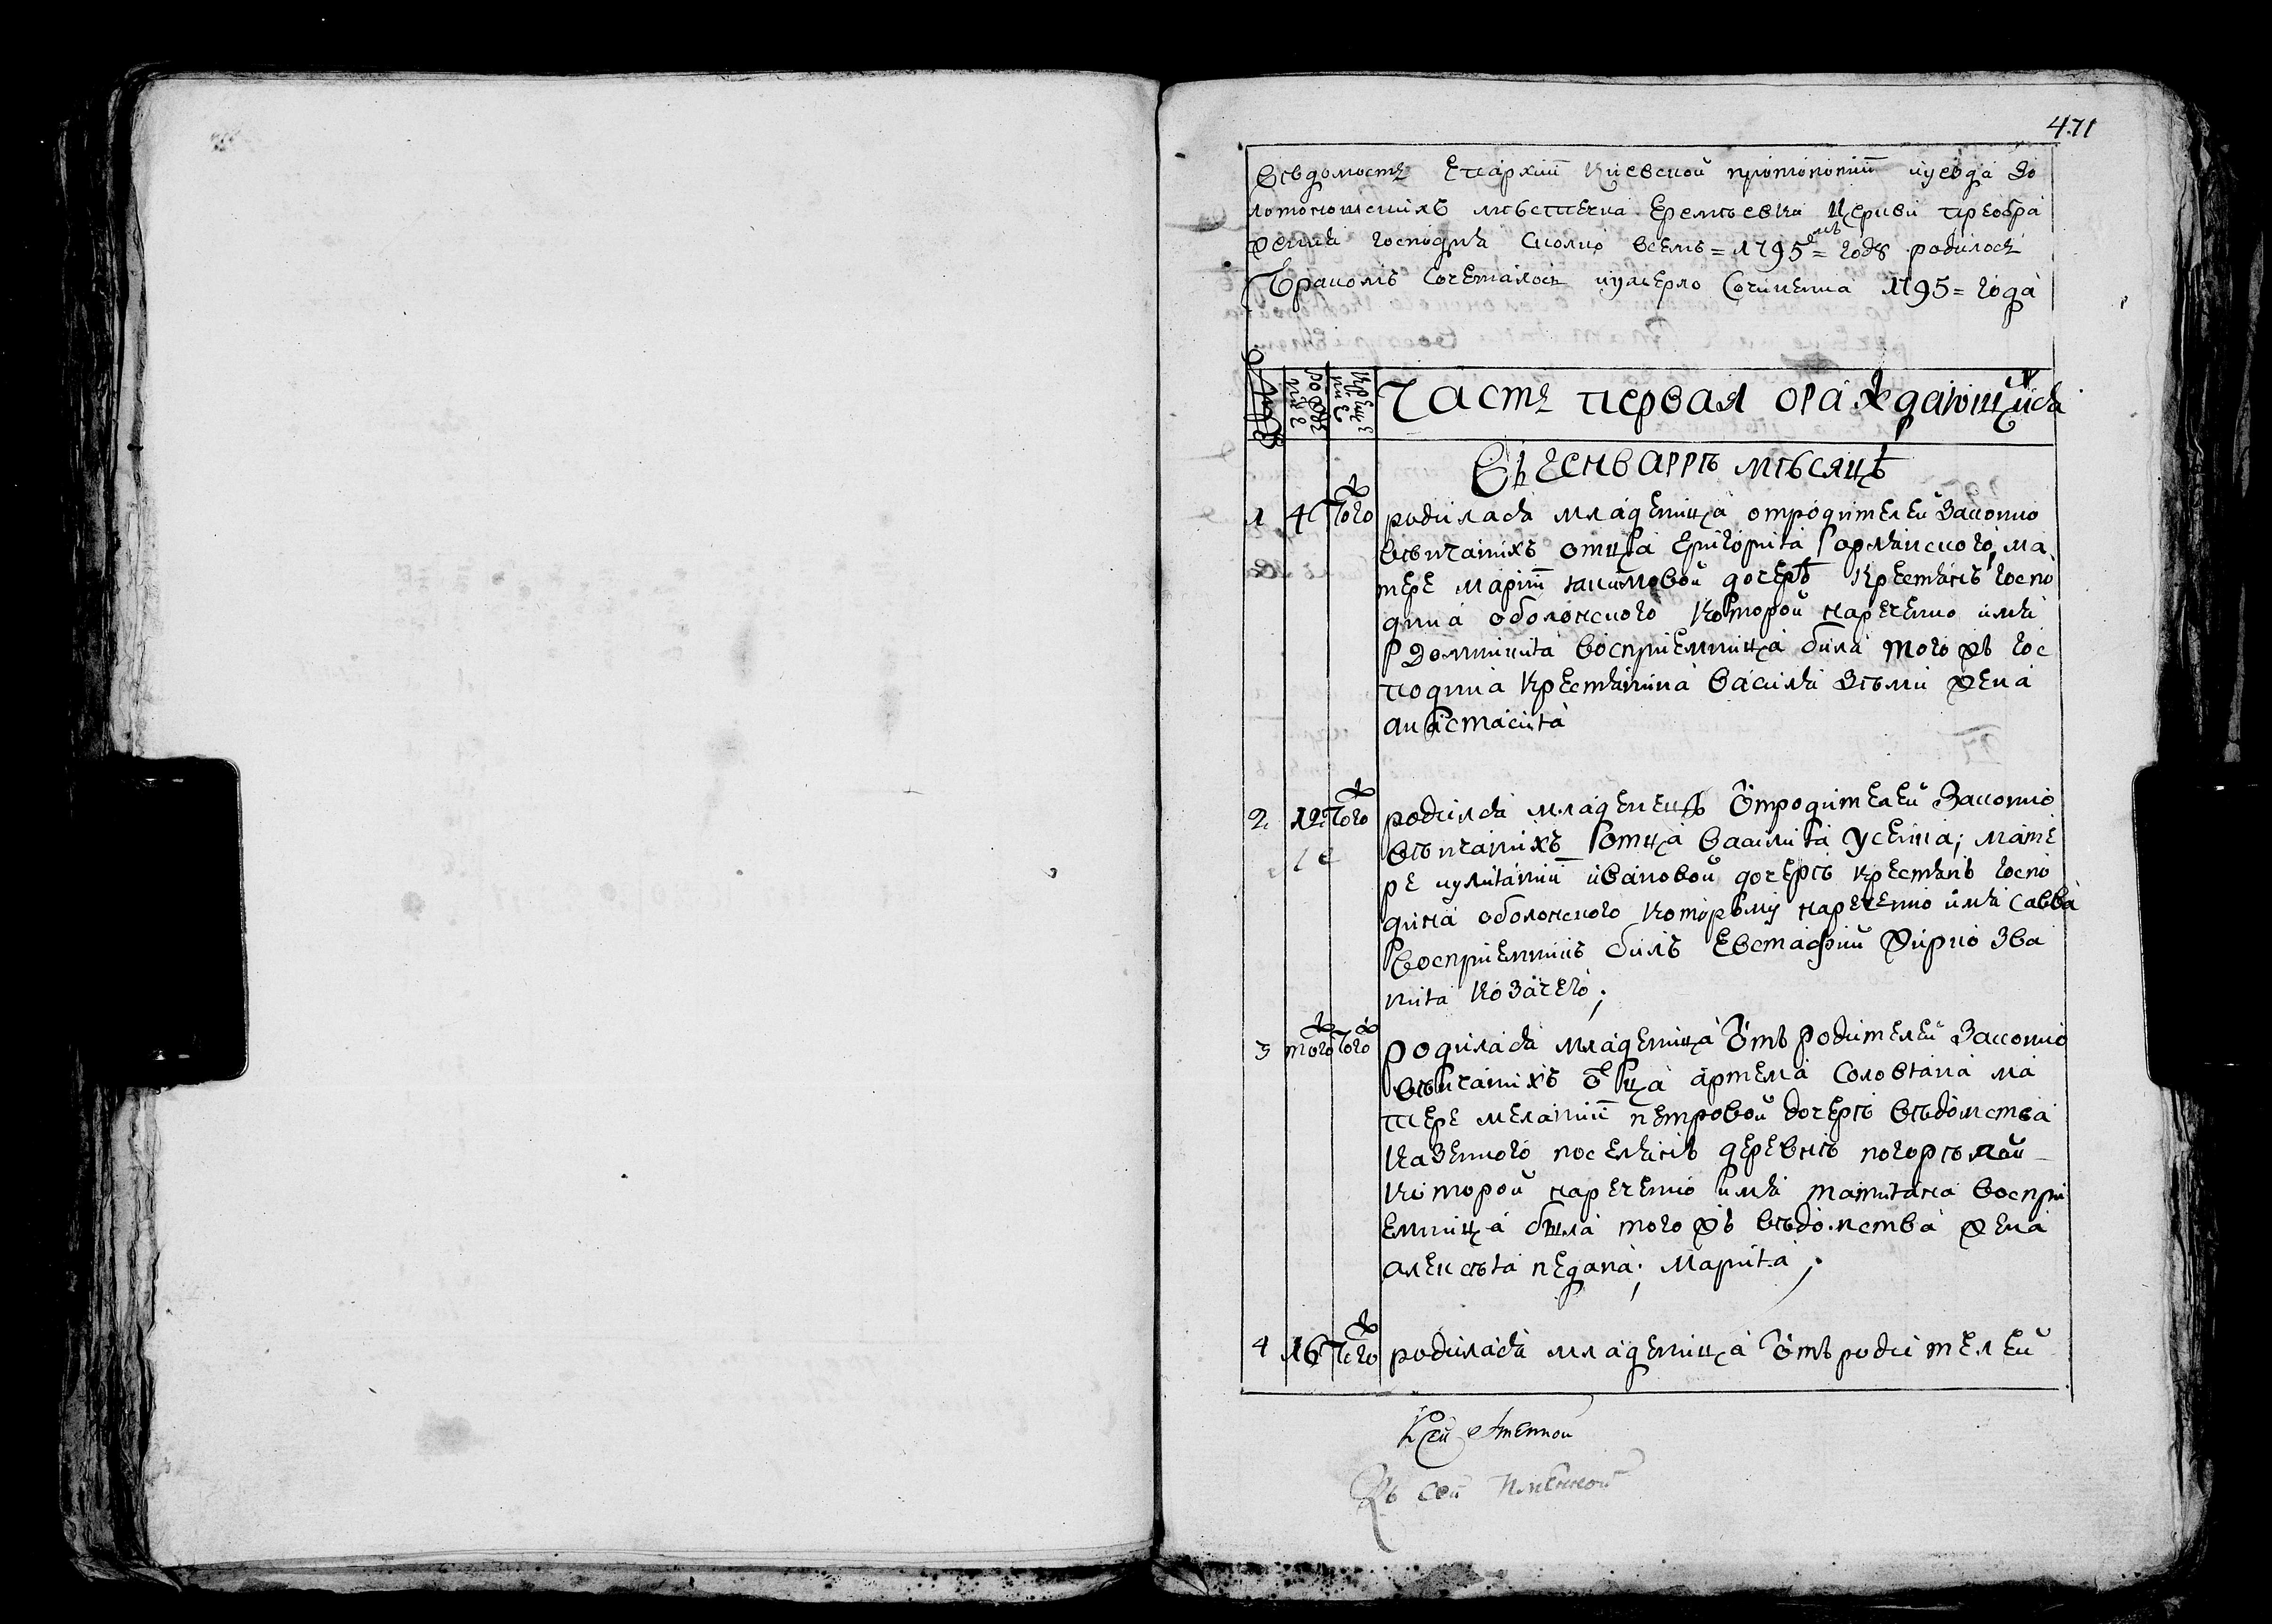 471
Вѣдомость Епархии Киевской протопопии и уезда Зо
лотоношскихъ мѣстечка Еремѣевки Церкви Преобра
жения Господня сколко всемъ =1795= году родилось
Бракомъ сочеталось и умерло сочинена 1795= года
рожде
ние
креще
ние
Часть первая о раждающихся
Въ генваррѣ мѣсяцѣ
1 4 того ж родилася младеница от родителей законно
вѣнчанихъ отца Григория Горянского, ма
тере Марии Якимовой дочерѣ крестянъ госпо
дина оболонского которой наречено имя
Домникия восприемница била того жъ гос
подина крестянина Василя Зѣми жена
Анастасия
2 12 того ж родился младенецъ от родителей законно
вѣнчанихъ отца Василия Усенка; мате
ре Иулиянии Ивановой дочерѣ крестянъ госпо
дина оболонского которому наречено имя Савва
восприемникъ билъ Евстафий Жирко зва
ния козачего;
3 того ж того ж родилася младеница отъ родителей законно
вѣнчанихъ отца Артема Соловяна ма
тере Мелании Петровой дочерѣ вѣдомства
казенного поселянъ деревнѣ погорѣлой
которой наречено имя Татияна воспри
емница била того жъ вѣдомства жена
Алексѣя педана; Мария;
4 16 того ж родилася младеница отъ родителей
К сей
Къ сей